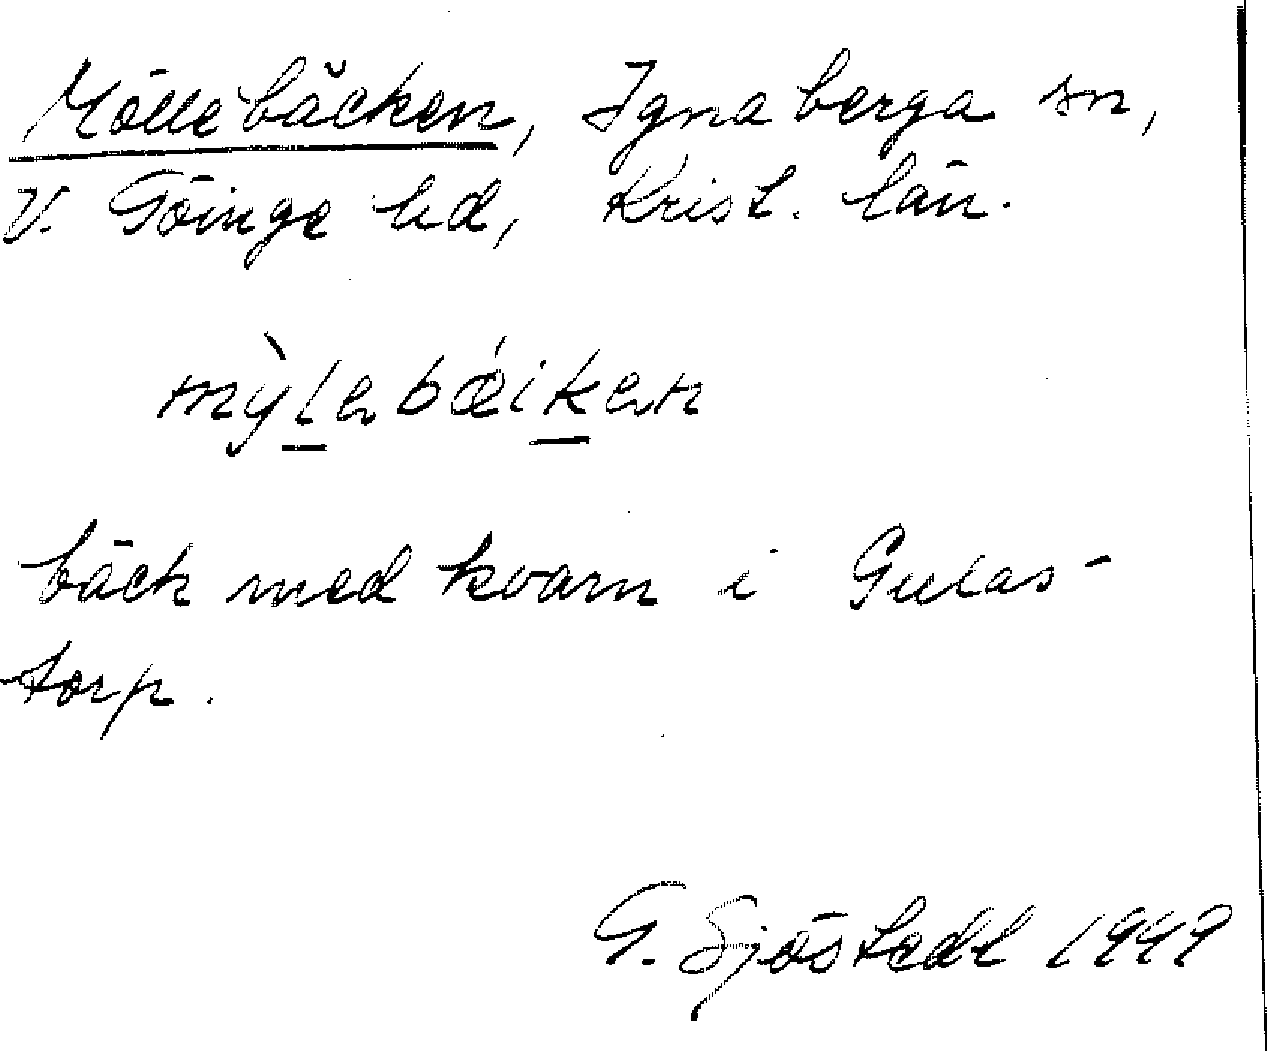 Möllebäcken, Ignaberga sn,
V. Göinge hd, Krist. län.
mỳlebǽiken
bäck med kvarn i Gulas-
torp.
G. Sjöstedt 1949